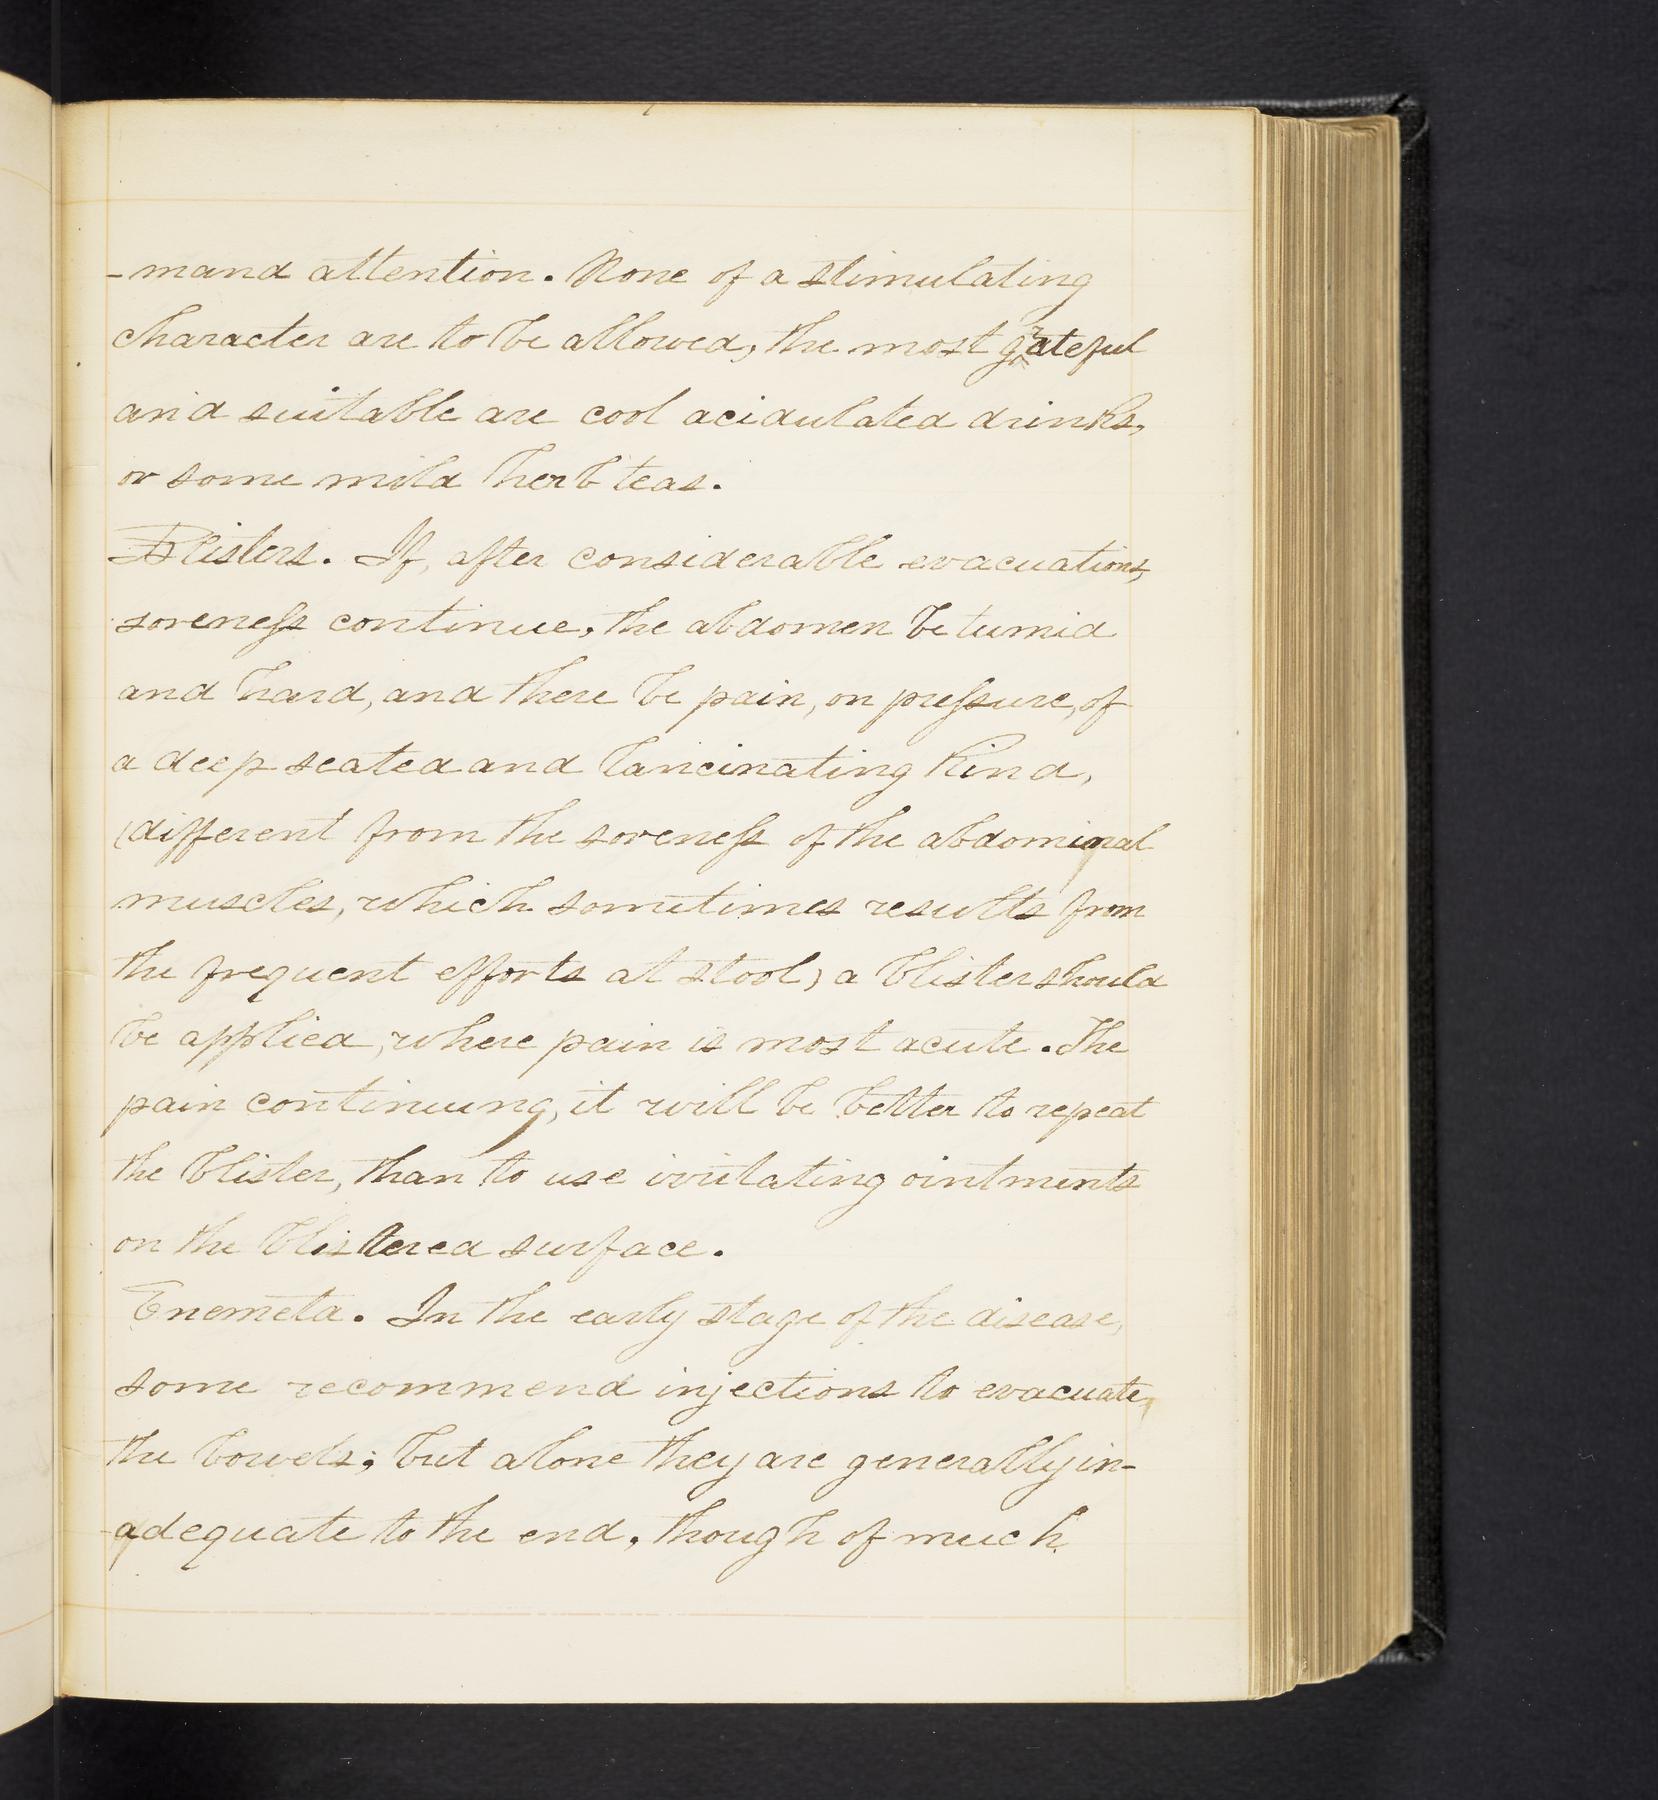 -mand attention. None of a stimulating
character are to be allowed, the most grateful
and suitable are cool acidulated drinks,
or some mild herb teas.
Blisters. If, after considerable evacuations,
soreness continue, the abdomen be tumid
and hard, and there be pain, on pressure, of
a deep seated and lancinating kind,
(different from the soreness of the abdominal
muscles, which sometimes results from
the frequent efforts at stool) a blister should
be applied, where pain is most acute. The
pain continuing, it will be better to repeat
the blister, than to use irritating ointments
on the blistered surface.
Enemeta. In the early stage of the disease,
some recommend injections to evacuate
the bowels; but alone they are generally in-
adequate to the end, though of much